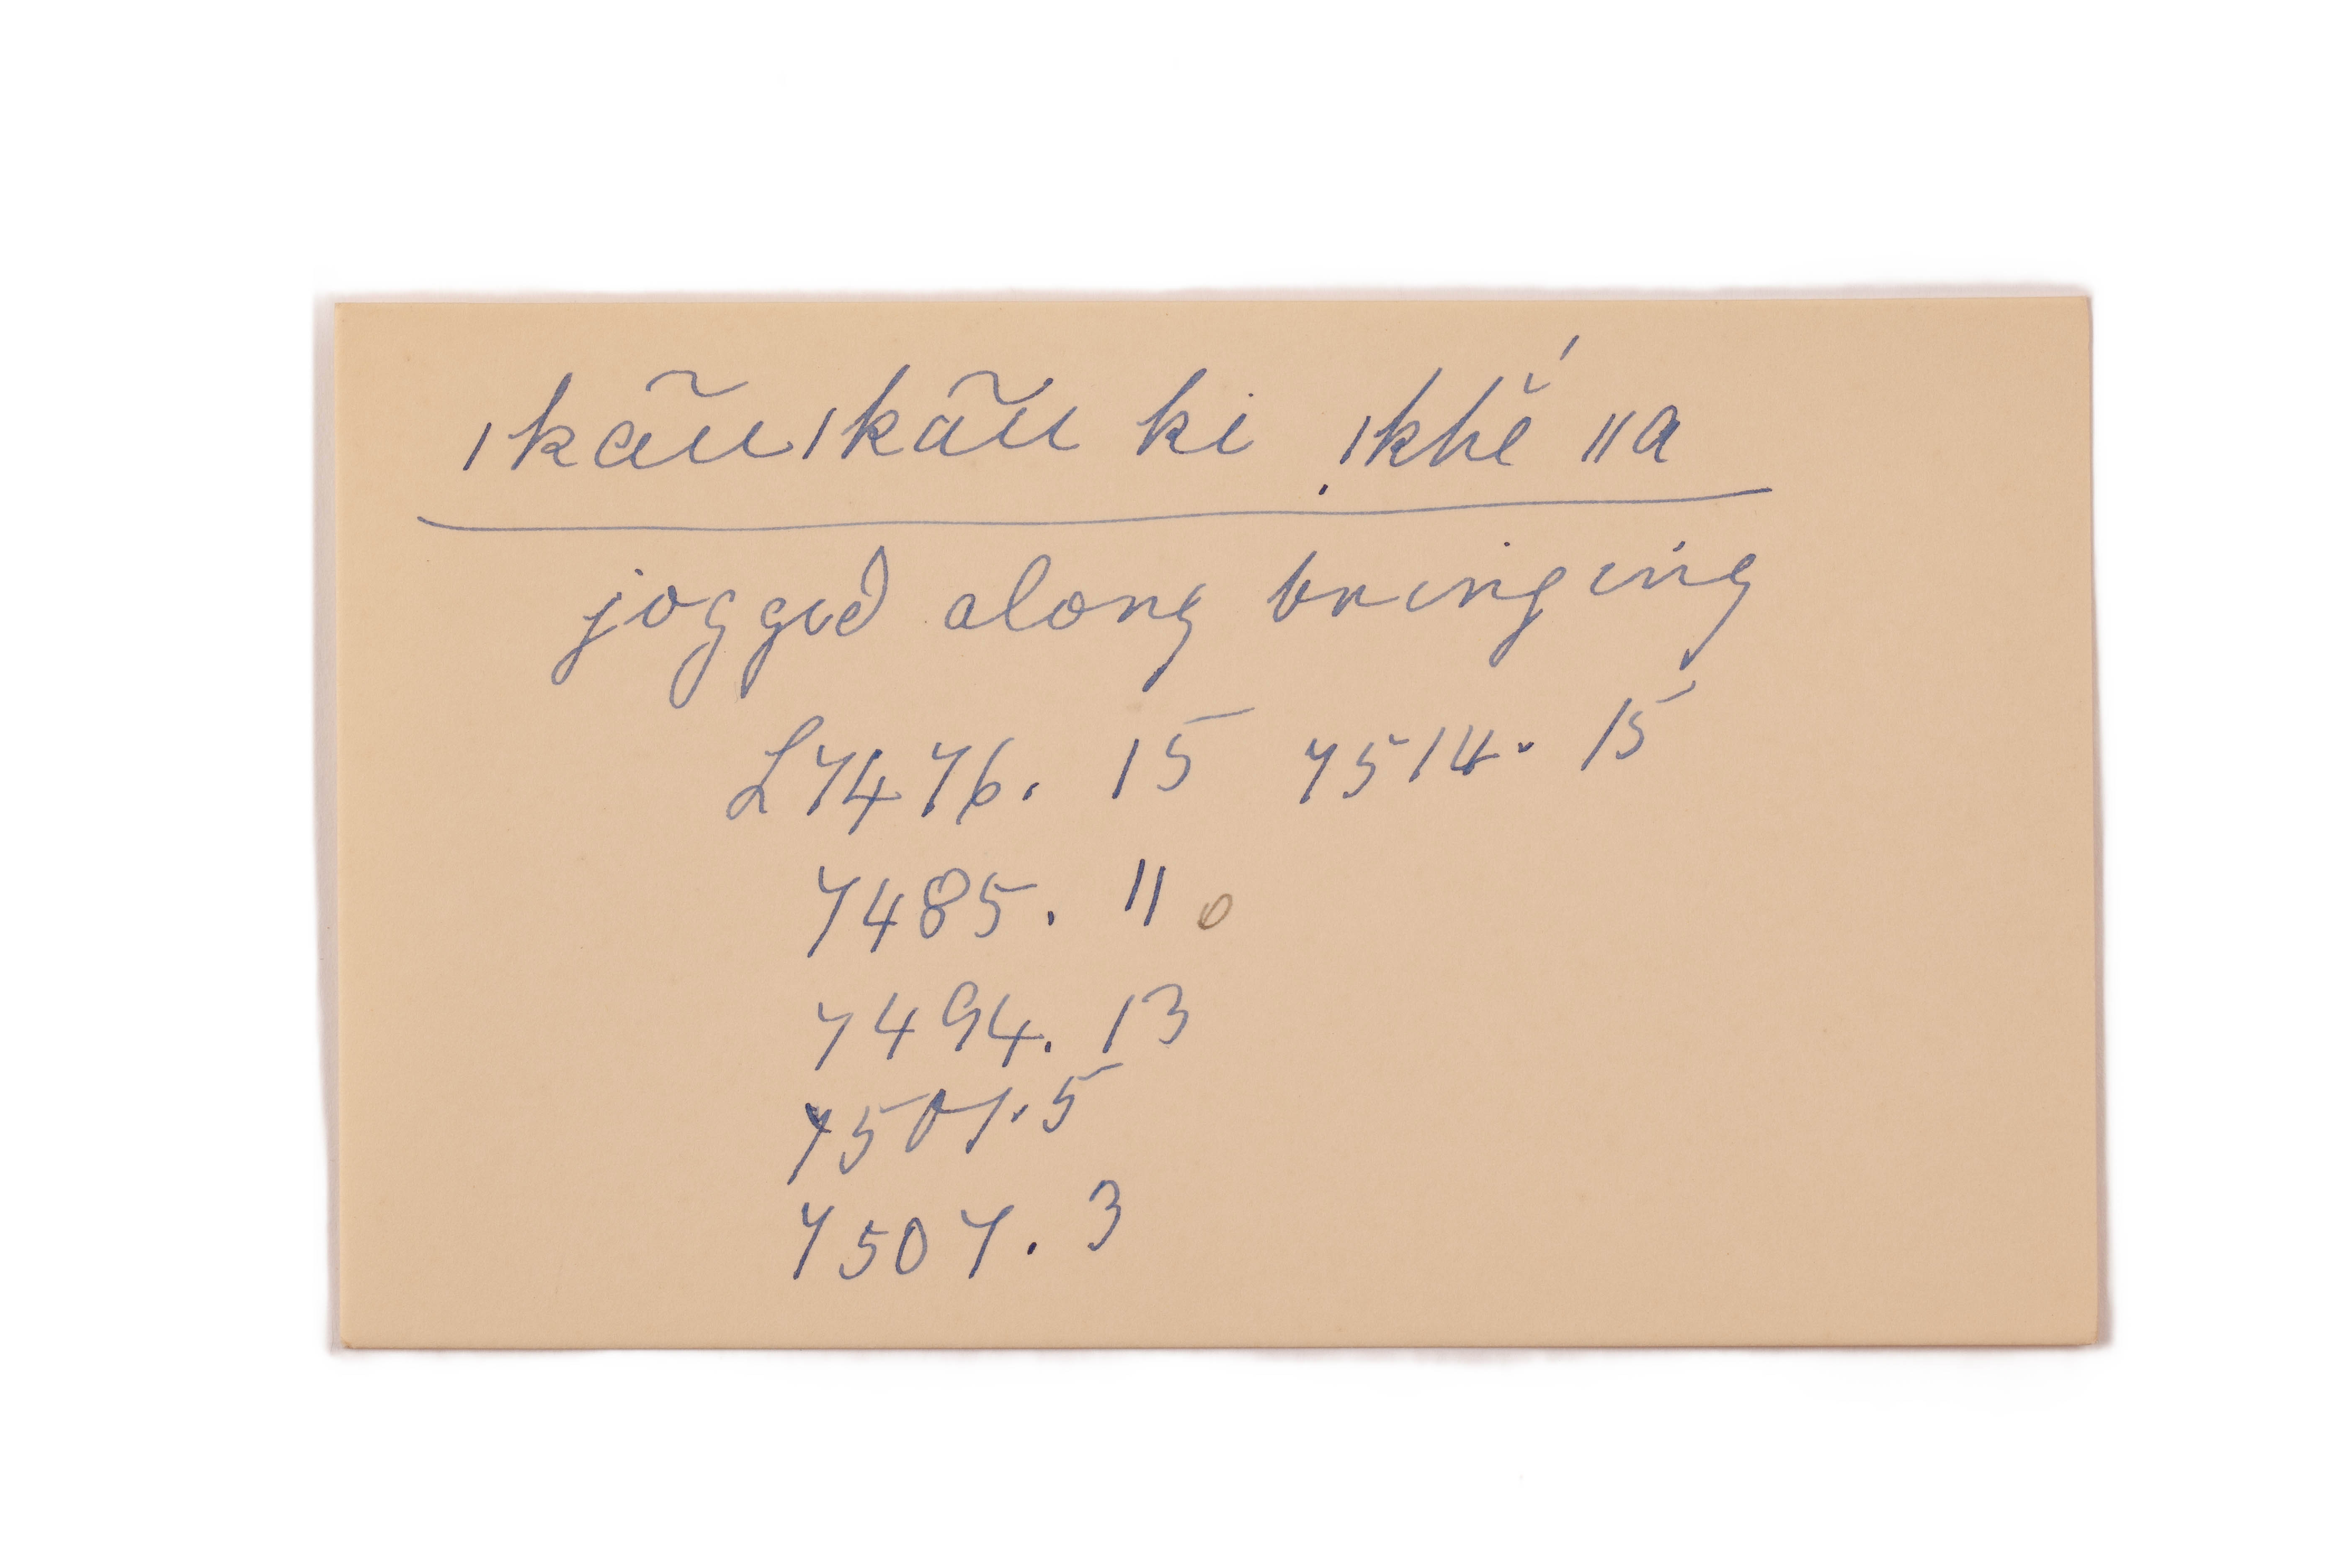 ǀkãũǀkãũ ki ǀkhĕ́ ǁa
jogged along bringing
L7476. 15 7514. 15
7485. 11 o
7494. 13
7501.5
7507. 3